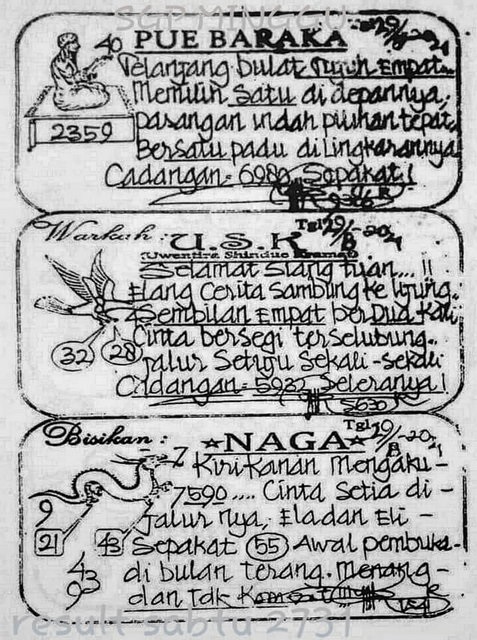 SGP MINGGU
PUE BARAKA
40
Telanjang bulat Tujuh Empat..
Memilih Satu di depannya,
2359
pasangan indah pilihan tepat,
Bersatu padu di lingkarannya
Cadangan= 6980 Sepakat!
Warkah :
U.S.K
Tgl 29/8-2021
(Uwentira Shindue Kramat)
Selamat siang tuan... !!
Elang Cerita Sambung ke Ujung.
Sembilan Empat ber Dua kali
Cinta bersegi terselubung.
32
28
Jalur Setuju Sekali-sekali
Cadangan= 5932 Seleranya!
Bisikan :
★NAGA★
Tgl 29/8-2021
7 Kiri Kanan Mengaku-
7590 .... Cinta Setia di-
9
Jalur nya, Eladan Eli-
21
43
Sepakat 55 Awal pembuka-
43
di bulan terang. Menang-
9
dan Tdk
result sabtu 2731